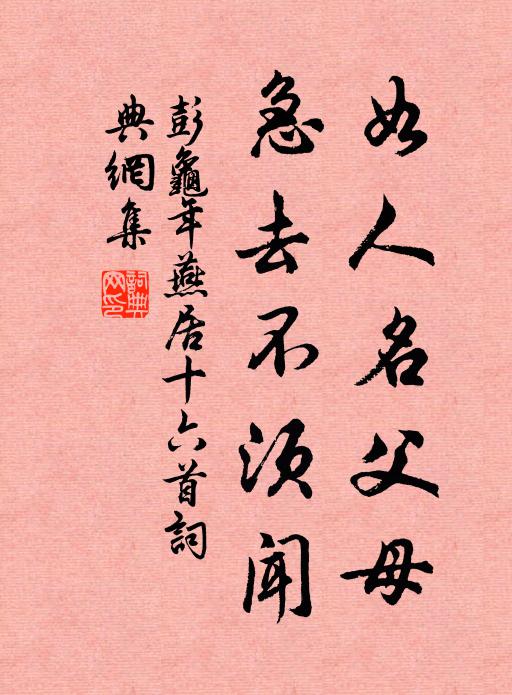 如人名父母
急去不須聞
彭龜年燕居十六首詞
典網集
詞典網印